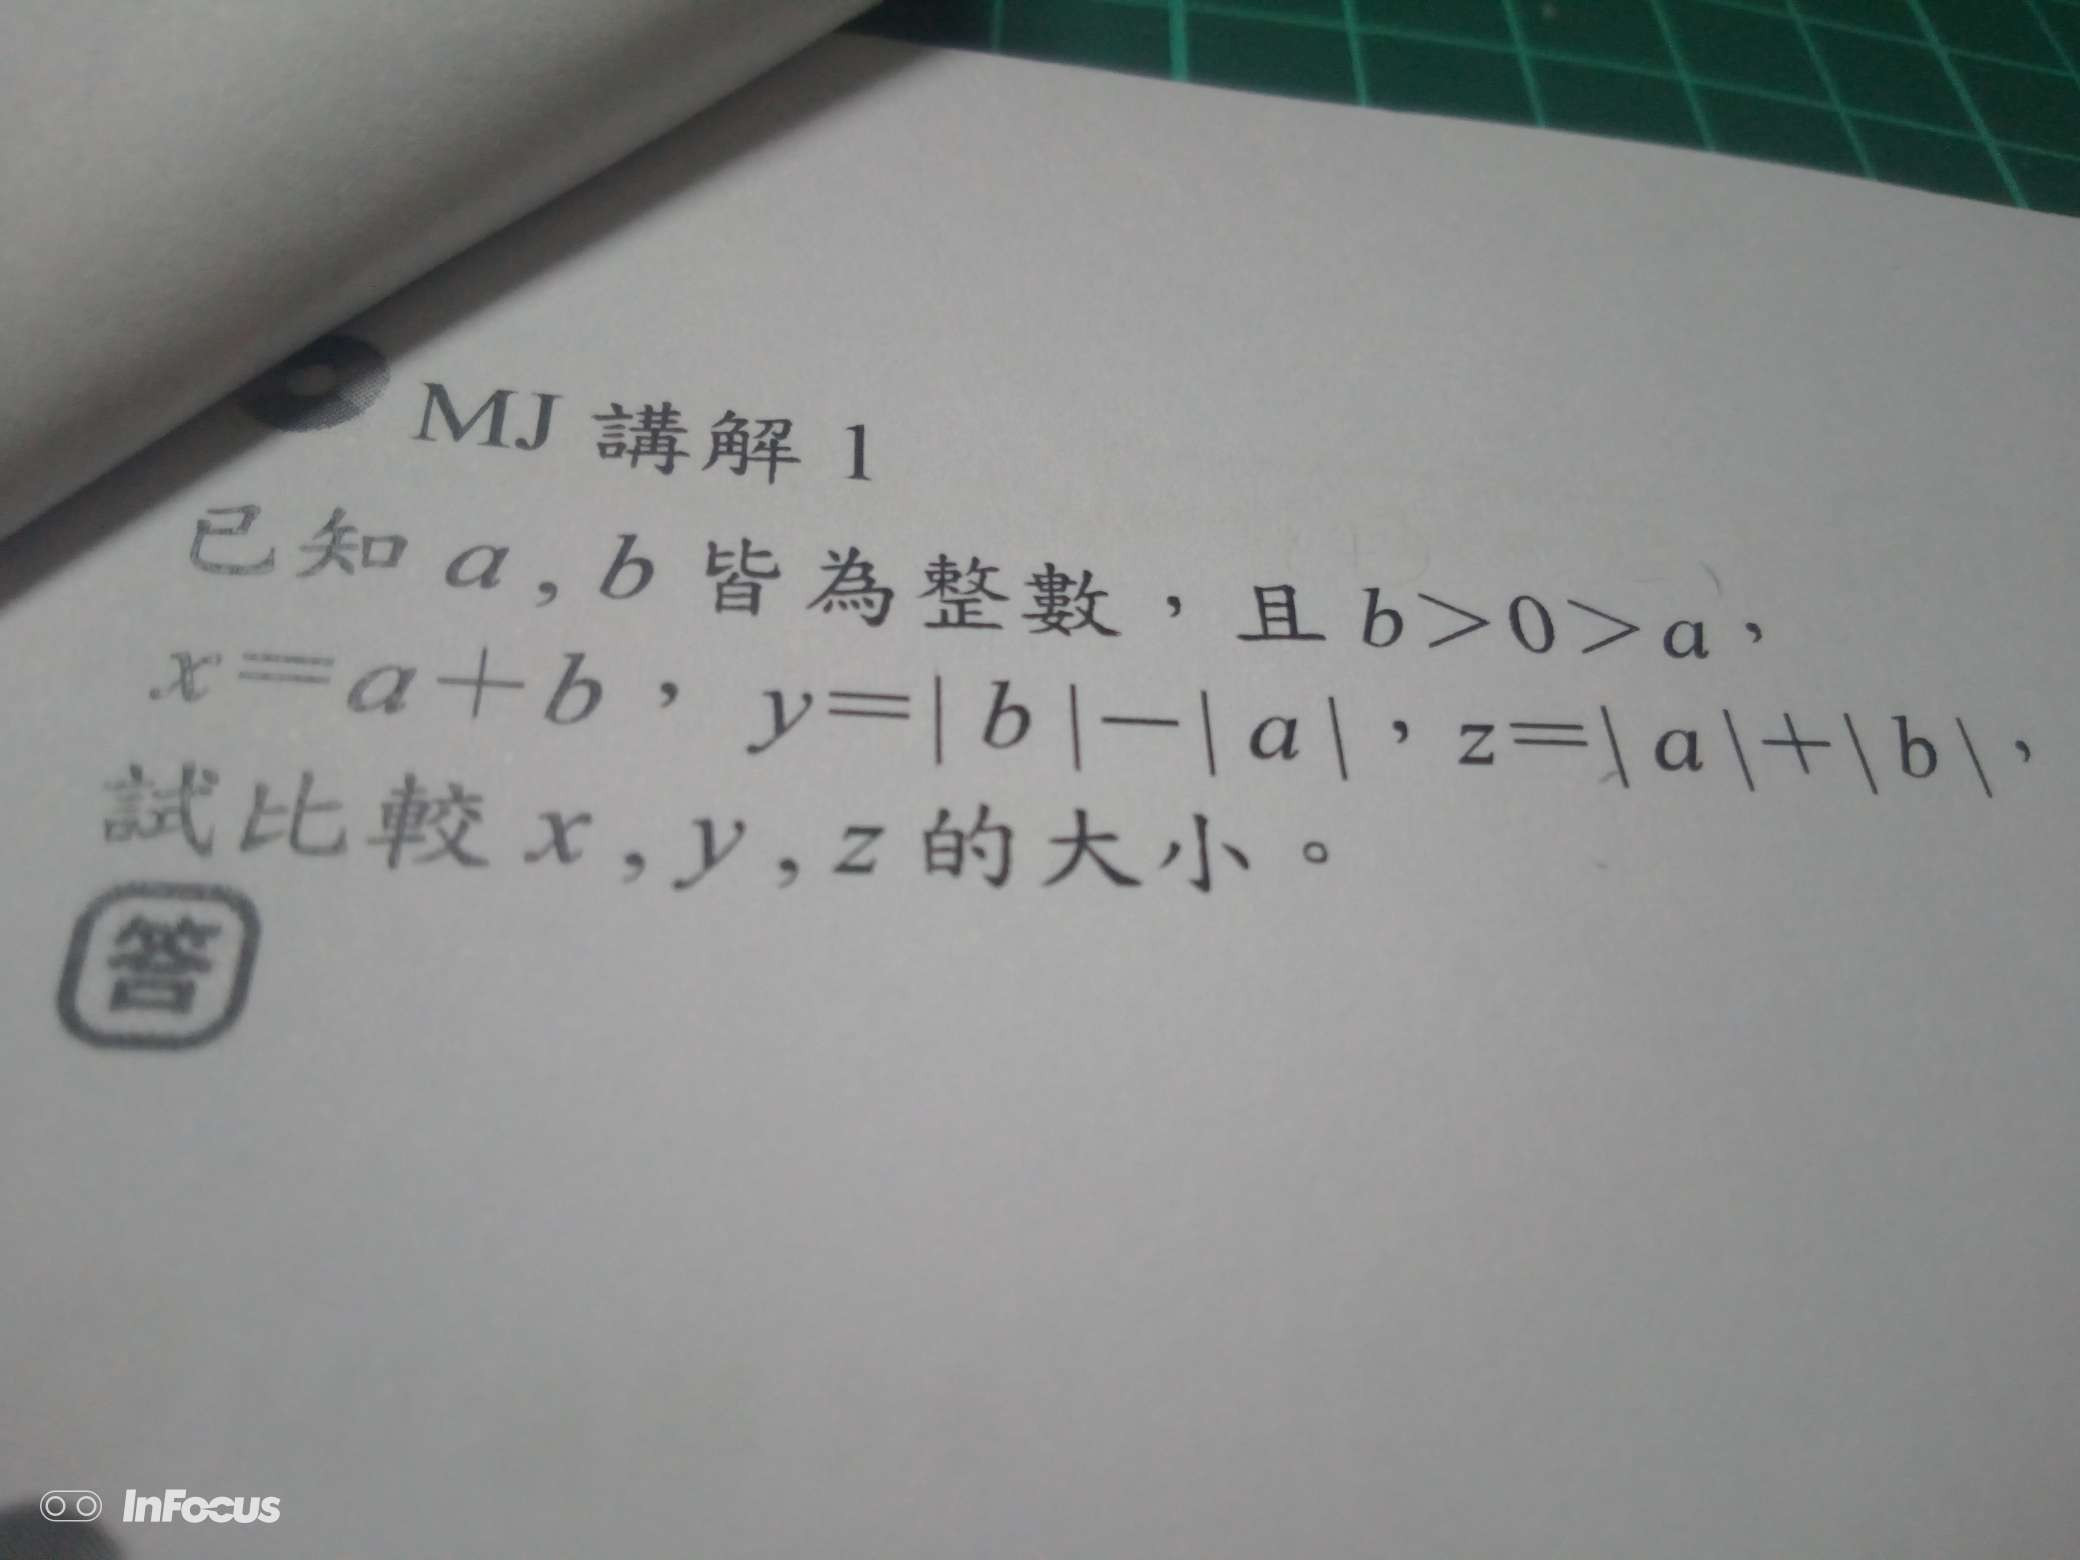 MJ 講解 1
已知 a , b 皆為整數，且 b＞0＞a，
x＝a＋b，y＝| b |－| a |，z＝| a |＋| b |，
試比較 x , y , z 的大小。
答
InFocus